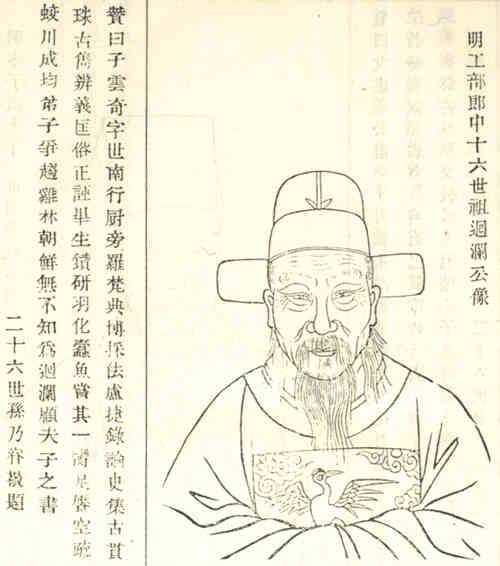 明工部郎中十六世祖迴瀾公像
贊曰子雲奇字世南行厨旁羅梵典博採佉盧捷錄論史集古貫
珠古儁辨義匡俗正畢生鑽研羽化蠹魚嘗其一臠足醫空疏
蛟川成均弟子爭趨雞林朝鮮無不知爲迴瀾顧夫子之書
二十六世孫乃眷題